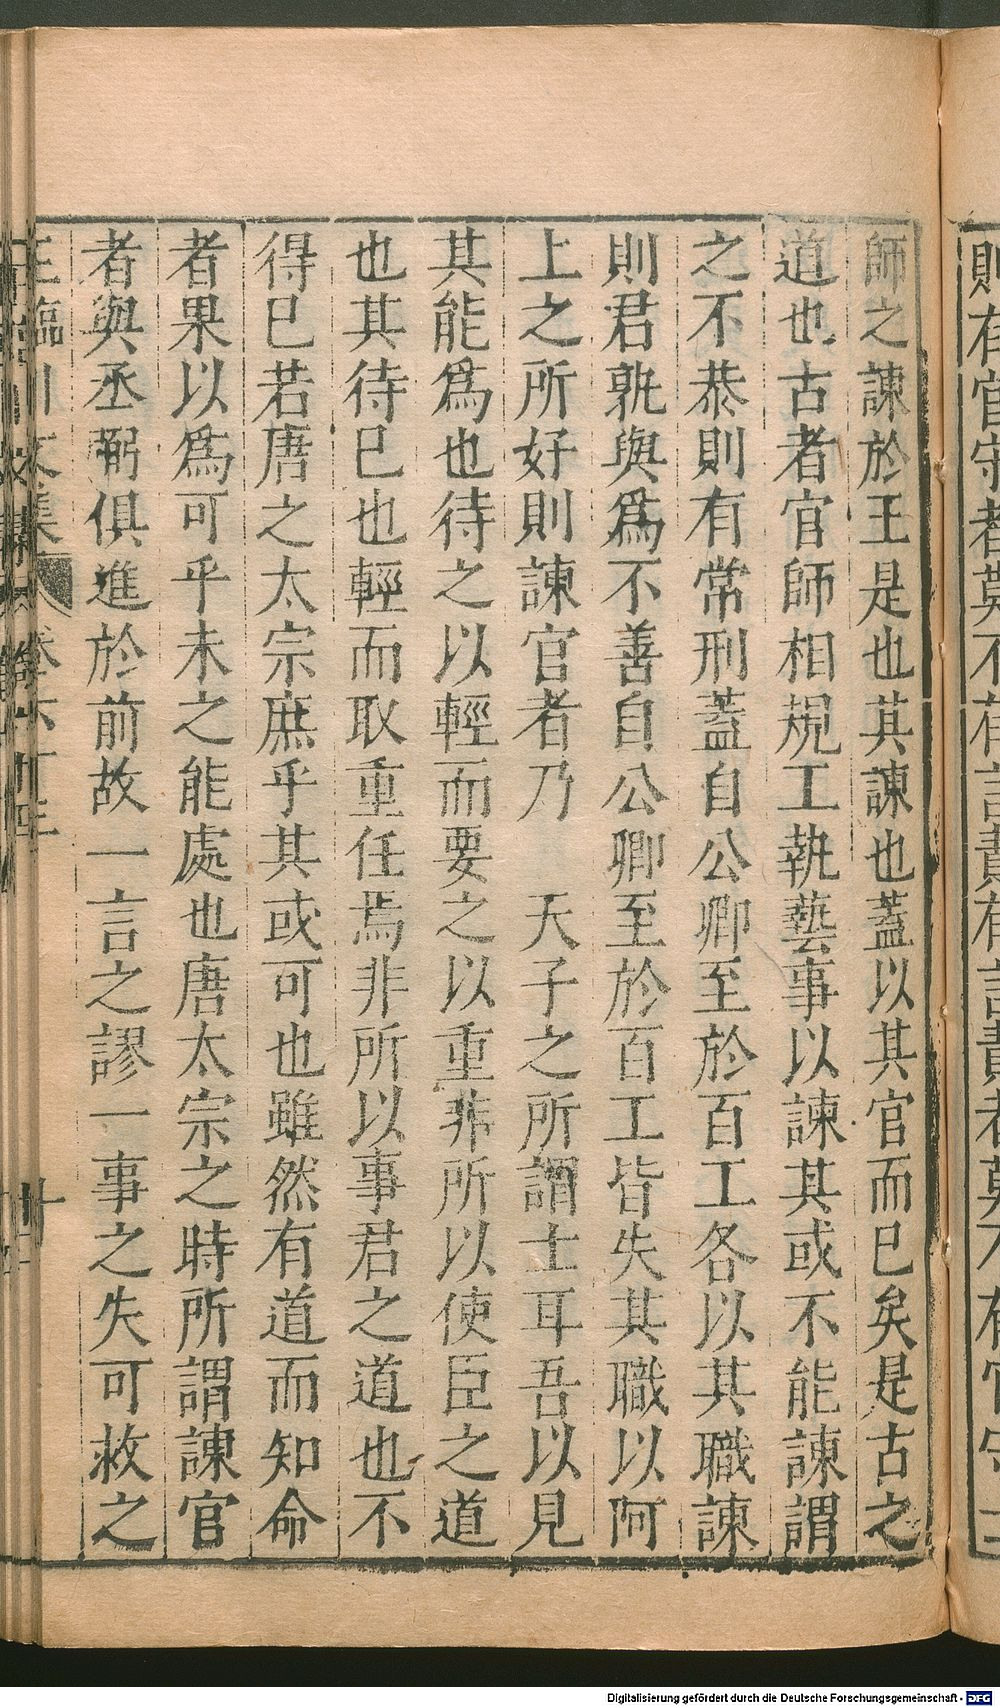 師之諫於王是也其諫也蓋以其官而已矣是古之
道也古者官師相規工執藝事以諫其或不能諫謂
之不恭則有常刑蓋自公卿至於百工各以其職諫
則君孰與爲不善自公卿至於百工皆失其職以阿
上之所好則諫官者乃　天子之所謂士耳吾以見
其能爲也待之以輕而要之以重非所以使臣之道
也其待已也輕而取重任焉非所以事君之道也不
得已若唐之太宗庶乎其或可也雖然有道而知命
者果以爲可乎未之能處也唐太宗之時所謂諫官
者與丞弼俱進於前故一言之謬一事之失可救之
Digitalisierung gefördert durch die Deutsche Forschungsgemeinschaft - DFG